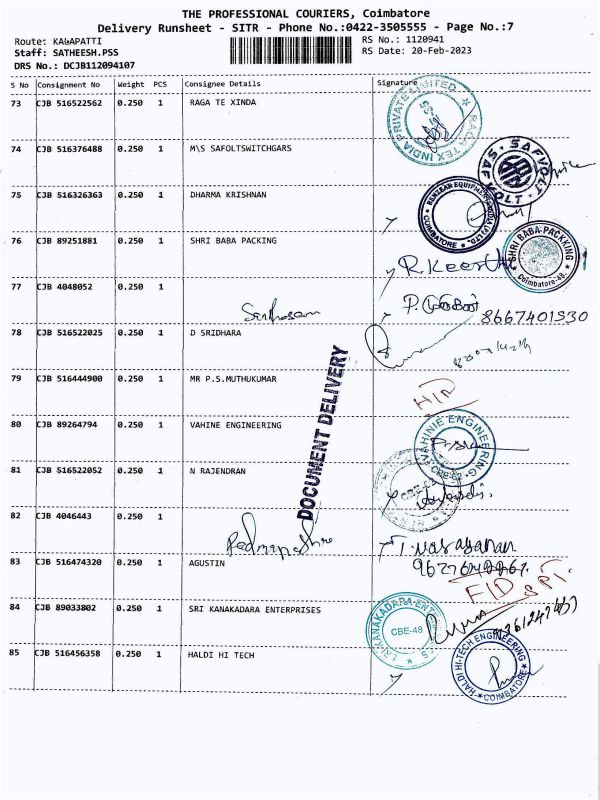 THE PROFESSIONAL COURIERS, Coimbatore
Delivery Runsheet - SITR - Phone No.:0422-3505555 - Page No.:7
Route: KALAPATTI
RS No.: 1120941
Staff: SATHEESH.PSS
RS Date: 20-Feb-2023
DRS No.: DCJB112094107
S No Consignment No Weight PCS Consignee Details Signature
73 CJB 516522562 0.250 1 RAGA TE XINDA
RAGA TEX INDIA PRIVATE LIMITED
74 CJB 516376488 0.250 1 M\S SAFOLTSWITCHGARS
SAFVOLT SAFVOLT
75 CJB 516326363 0.250 1 DHARMA KRISHNAN
COIMBATORE
76 CJB 89251881 0.250 1 SHRI BABA PACKING
SHRI BABA PACKKING
Coimbatore-48.
77 CJB 4048052 0.250 1
8667401530
78 CJB 516522025 0.250 1 D SRIDHARA
79 CJB 516444900 0.250 1 MR P.S.MUTHUKUMAR
DOCUMENT DELIVERY
80 CJB 89264794 0.250 1 VAHINE ENGINEERING
VAHINIE ENGINEERING
81 CJB 516522052 0.250 1 N RAJENDRAN
82 CJB 4046443 0.250 1
83 CJB 516474320 0.250 1 AGUSTIN
84 CJB 89033802 0.250 1 SRI KANAKADARA ENTERPRISES
CBE-48
85 CJB 516456358 0.250 1 HALDI HI TECH
HALDI HI-TECH ENGINEERING
COIMBATORE